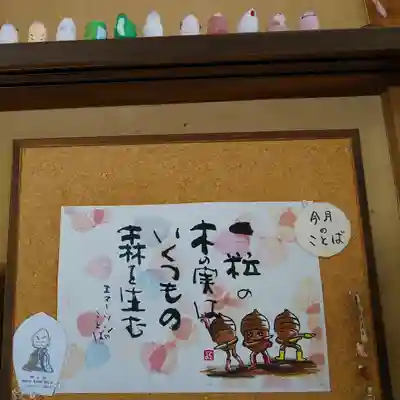 今月
の
ことば
一粒の
木の実は
いくつもの
森を生む
エマーソンの
ことば